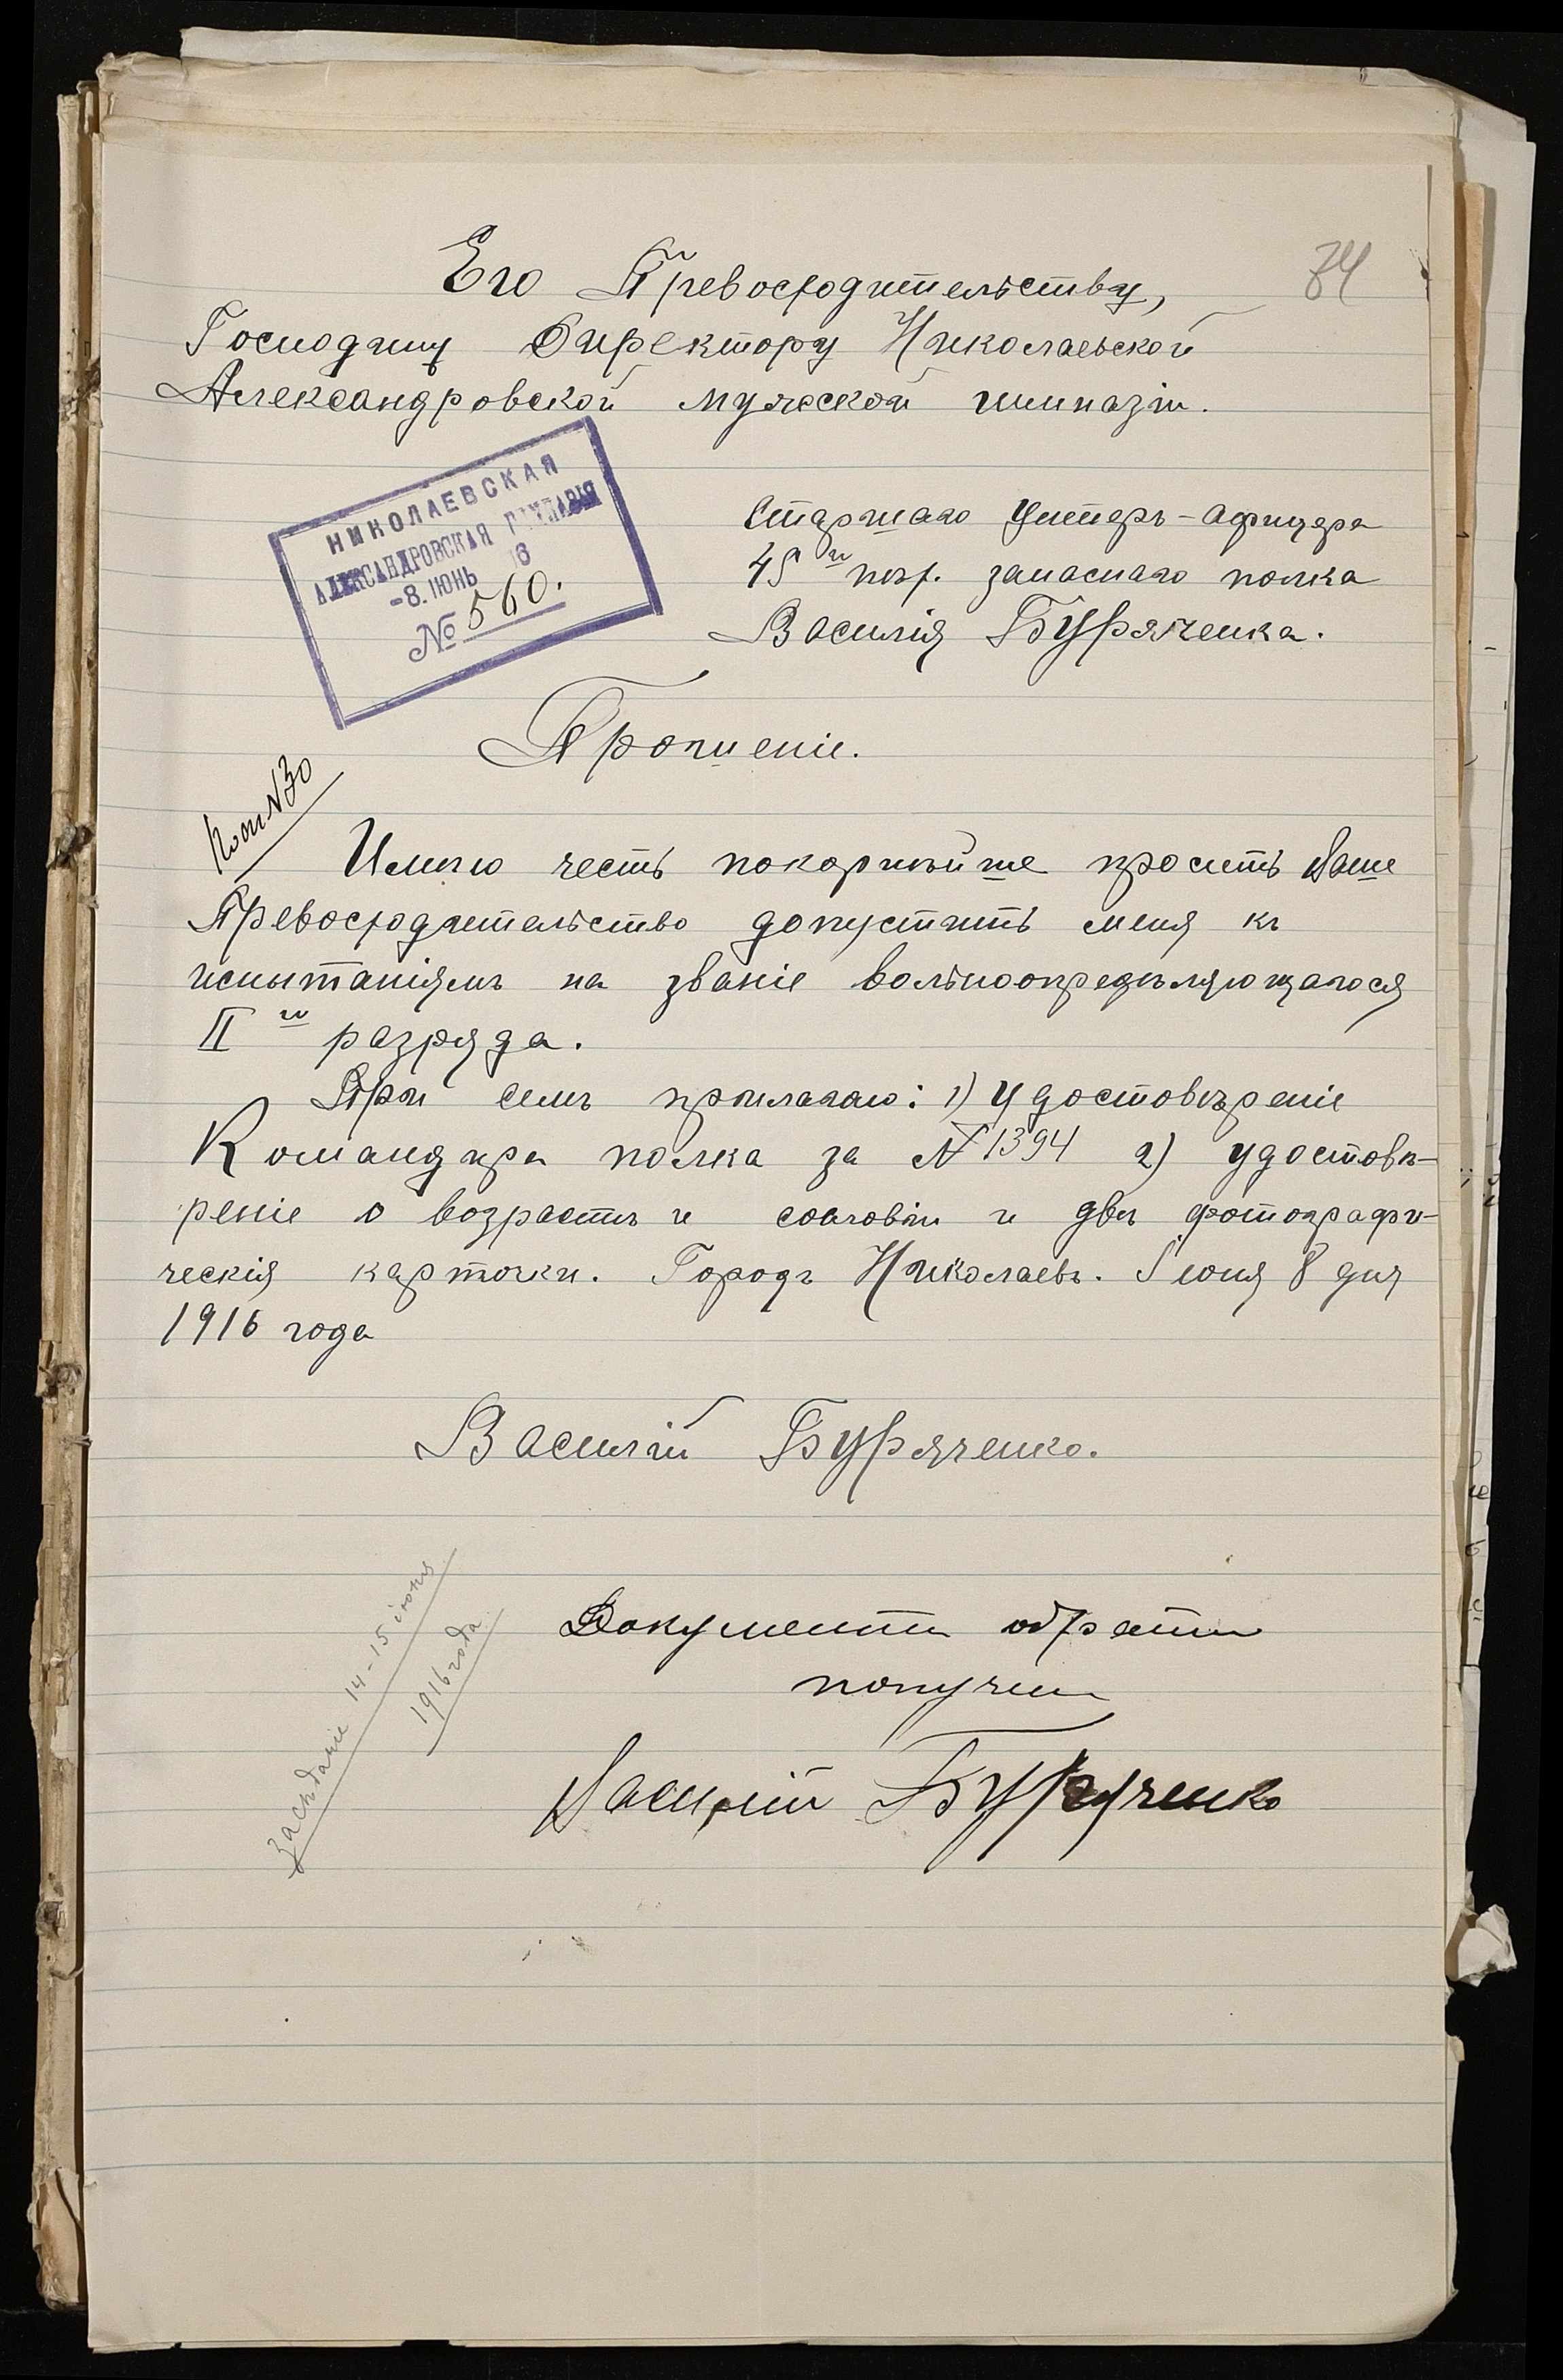 74
Его Превосходительству,
Господину Директору Николаевской
Александровской мужской гимназіи.
НИКОЛАЕВСКАЯ
АЛЕКСАНДРОВСКАЯ ГИМНАЗІЯ
-8. ІЮНЬ 16
№ 560.
Старшаго Унтеръ-Офицера
45го пех. запаснаго полка
Василія Буряченка.
Прошеніе.
№30
Имѣю честь покорнѣйше просить Ваше
Превосходительство допустить меня къ
испытаніямъ на званіе вольноопредѣляющагося
II го разряда.
При семъ прилагаю: 1) Удостовѣреніе
Командира полка за № 1394 2) удостовѣ-
реніе о возрастѣ и сословіи и двѣ фотографи-
ческія карточки. Городъ Николаевъ. Іюня 8 дня
1916 года
Василій Буряченко.
Засѣданіе 14-15 іюня
1916 года
Документы обратно
получилъ
Василій Буряченко